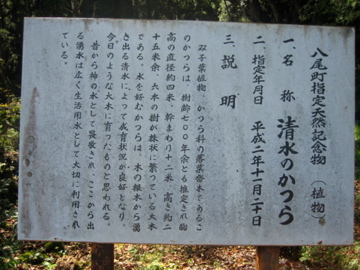 八尾町指定天然記念物（植物）
一、名称 清水のかつら
二、指定年月日 平成二年十一月二十日
三、説明
双子葉植物、かつら科の落葉喬木であるこ
のかつらは、樹齢七〇〇年余とも推定され胸
高の直径約四米、幹まわり十二米、高さ約二
十五米余、六本の樹が株状に繁っている大木
である。水を好むかつらは、木の根木から湧
き出る清水によって成育状況が良好となり、
今日のような大木に育ったものと思われる。
昔から神の水として崇敬され、ここから出
る湧水は広く生活用水として大切に利用され
ている。